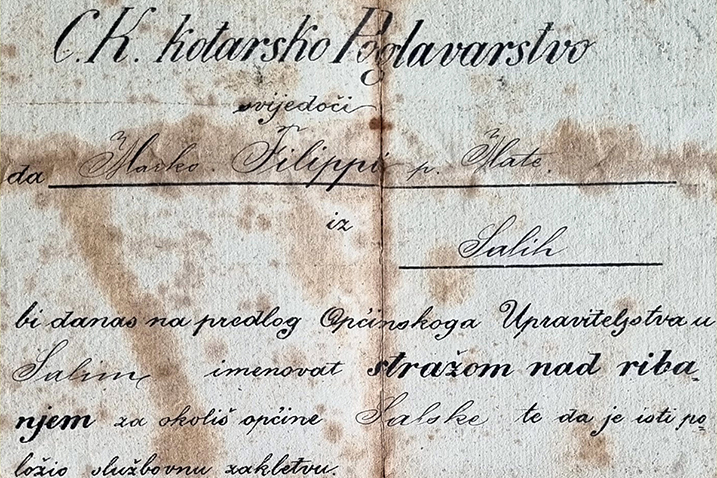 C. K. kotarsko Poglavarstvo
svijedoči
da Marko Filippi p. Mate
iz
Salih
bi danas na predlog Općinskoga Upraviteljstva u
Salim imenovat stražom nad riba-
njem za okoliš općine Salske te da je isti po
ložio službovnu zakletvu.